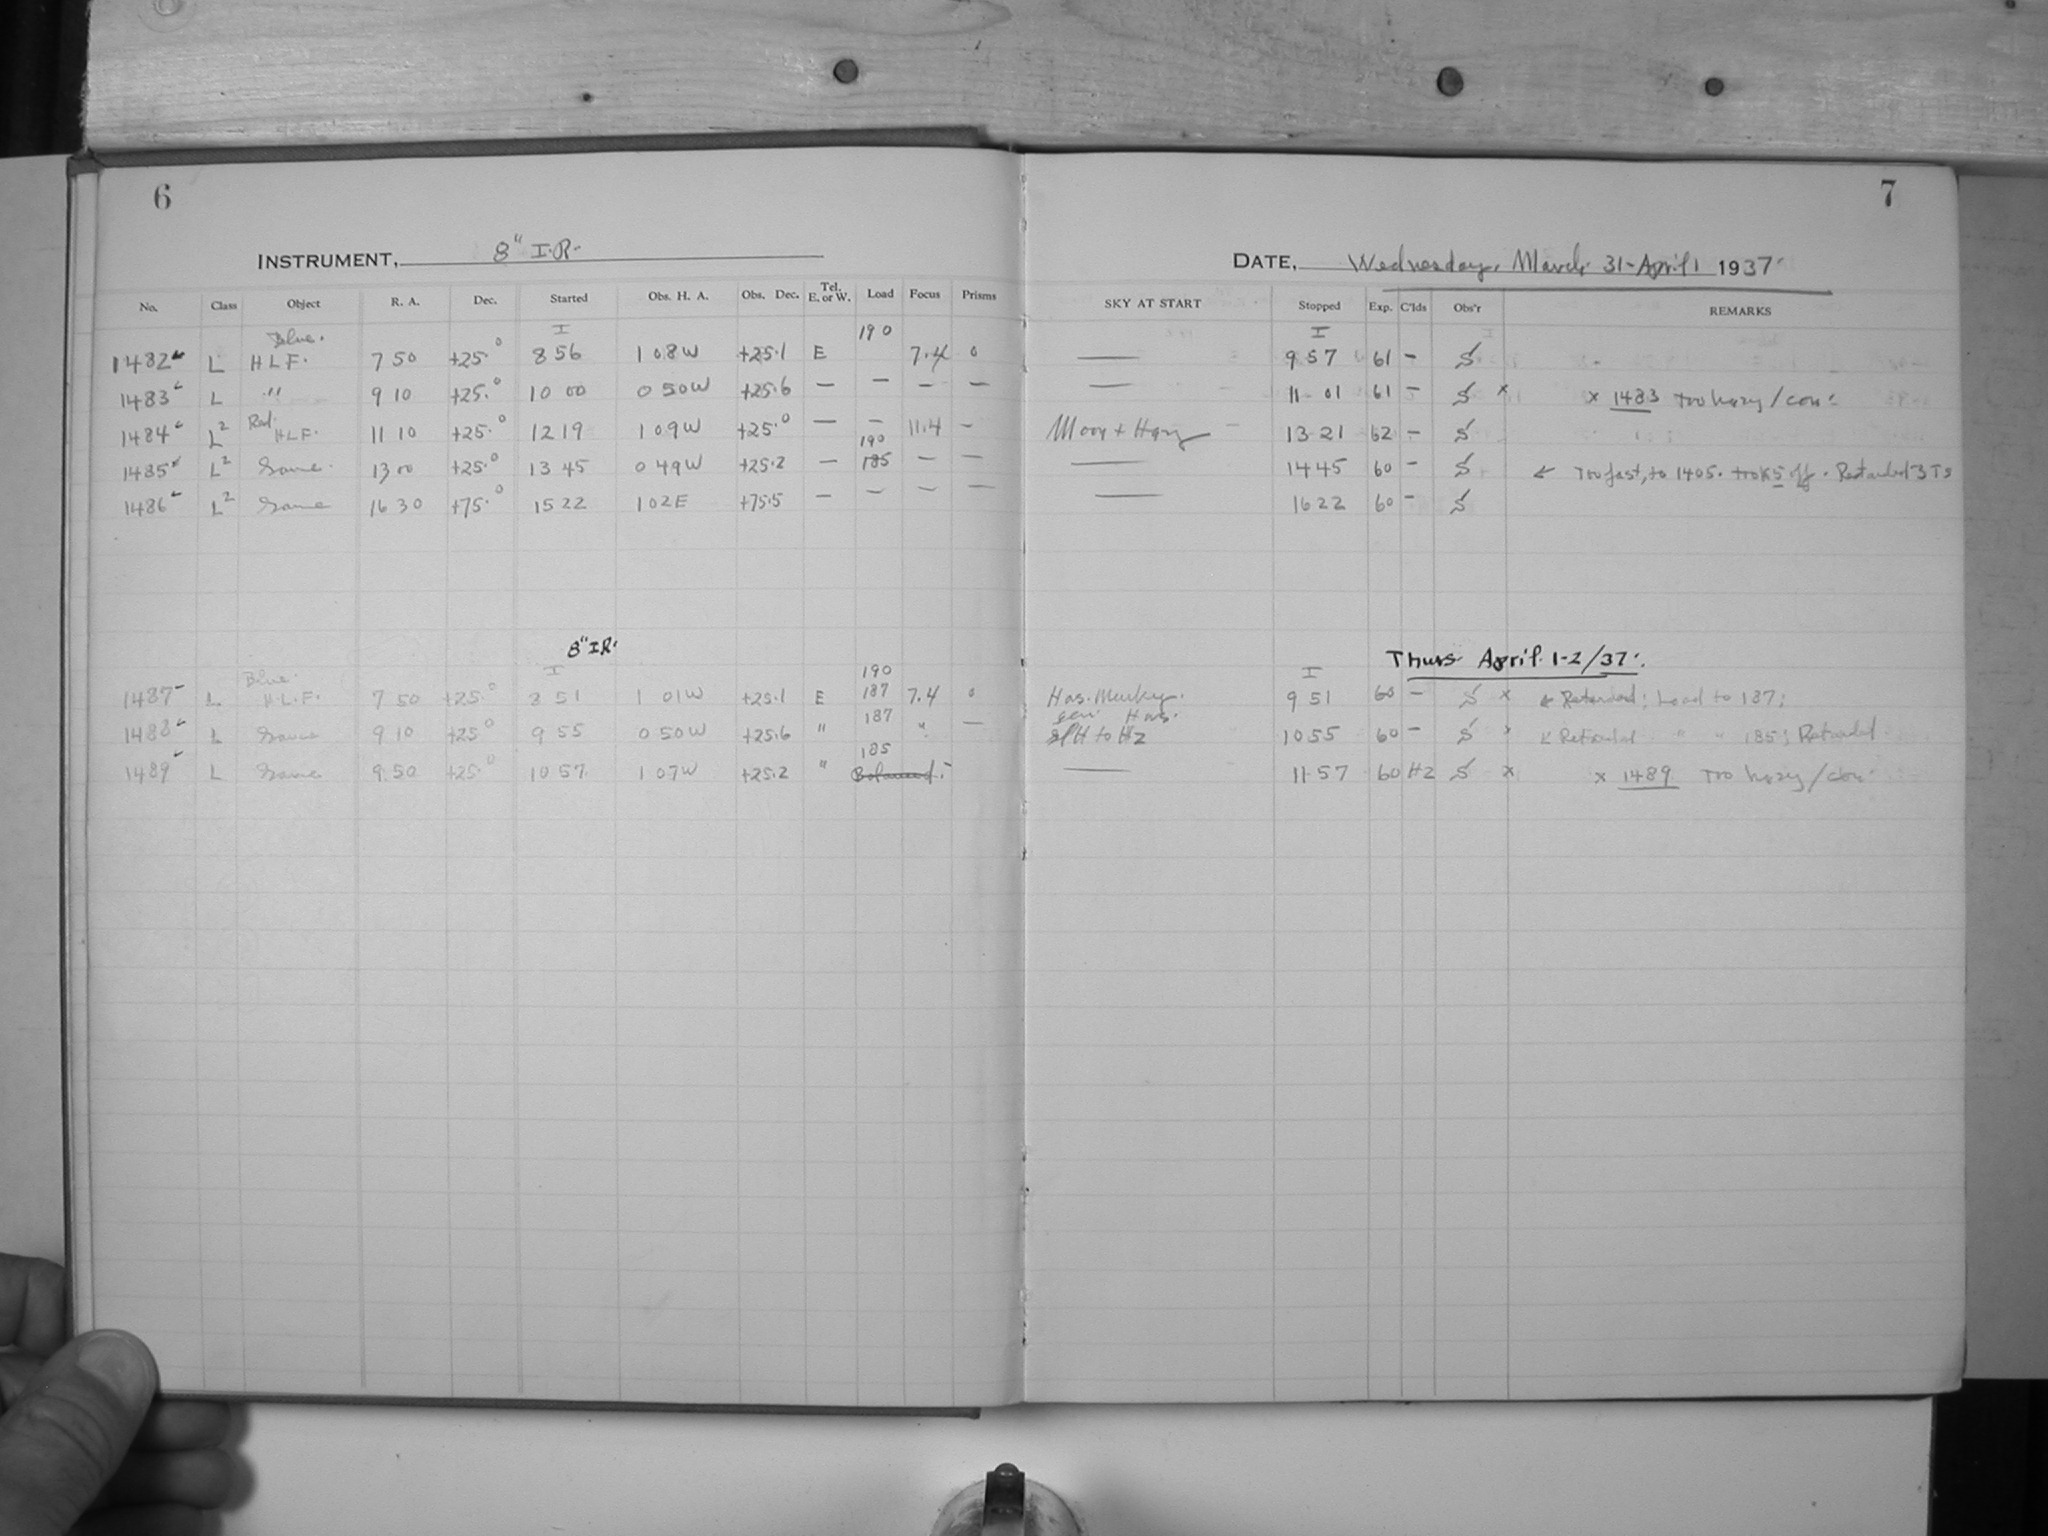 6
INSTRUMENT, 8" I.R.
No. Class Object R. A. Dec. Started Obs. H. A. Obs. Dec. Tel. E. or W. Load Focus Prisms
Blue. I 190
1482 L H L F. 7 50 +25.0 8 56 1 08W +25.1 E 7.4 0
1483 L " 9 10 +25.0 10 00 0 50W +25.6 — — — —
Red.
1484 L2 H.L.F. 11 10 +25.0 12 19 1 09W +25.0 — — 11.4 —
190
1485 L2 Same. 13 00 +25.0 13 45 0 49W +25.2 — 185 — —
1486 L2 Same 16 30 +75.0 15 22 1 02E +75.5 — — — —
8" I.R.
Blue. I 190
1487 L H.L.F. 7 50 +25.0 8 51 1 01W +25.1 E 187 7.4 0
1488 L Same 9 10 +25.0 9 55 0 50W +25.6 " 187 " —
185
1489 L Same 9 50 +25.0 10 57 1 07W +25.2 " Balanced.
7
DATE, Wednesday, March 31-April 1 1937.
SKY AT START Stopped Exp. C'lds Obs'r REMARKS
I
— 9 57 61 — S
— 11 01 61 — S x x 1483 Too hazy/con.
Moon + Hazy 13 21 62 — S
— 14 45 60 — S Too fast, to 1405. Took 5 off. Retarded 3 Ts
— 16 22 60 — S
Thurs April 1-2/37.
I
Has. Murky. 9 51 60 — S x Retarded; Load to 187;
Has.
H to Hz 10 55 60 — S x Retarded " " 185; Retarded
— 11 57 60 Hz S x x 1489 Too hazy/con.